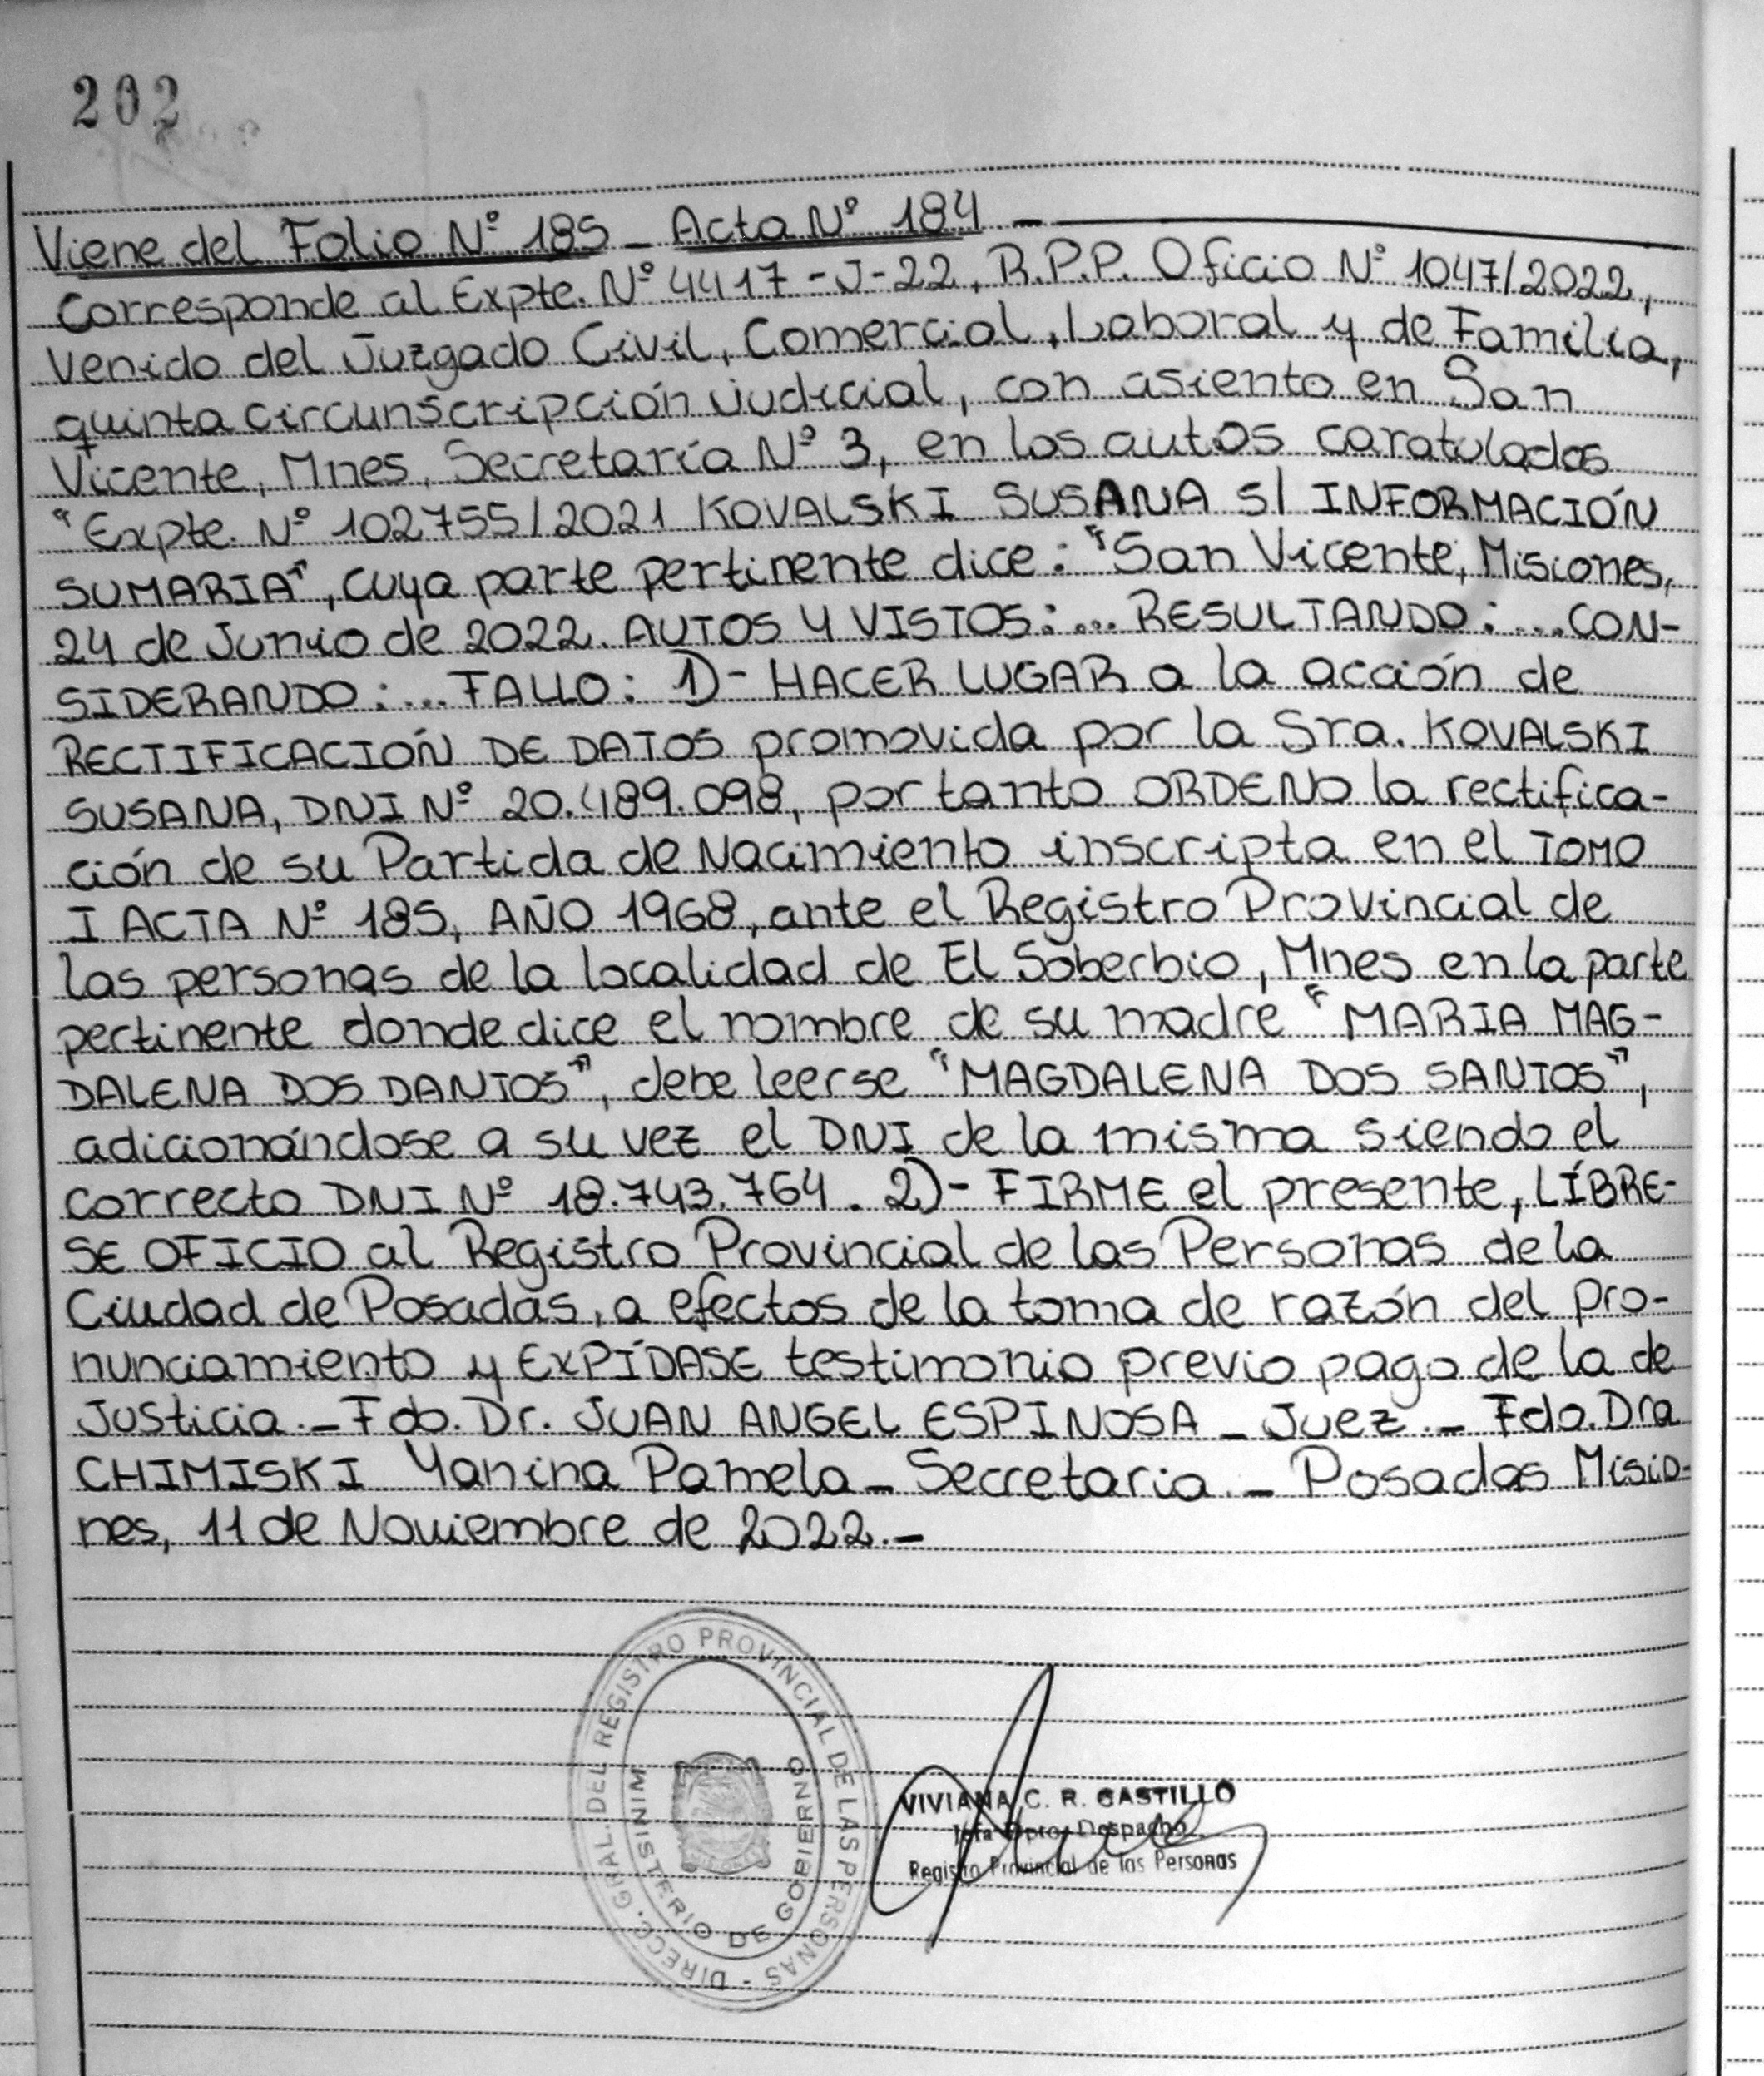 202
Viene del Folio Nº 185 - Acta Nº 184 -
Corresponde al Expte. Nº 4417-J-22, R.P.P. Oficio Nº 1047/2022,
Venido del Juzgado Civil, Comercial, Laboral y de Familia,
quinta circunscripción judicial, con asiento en San
Vicente, Mnes, Secretaría Nº 3, en los autos caratulados
"Expte. Nº 102755/2021 KOVALSKI SUSANA S/ INFORMACIÓN
SUMARIA", cuya parte pertinente dice: "San Vicente, Misiones,
24 de Junio de 2022. AUTOS Y VISTOS:... RESULTANDO:... CON-
SIDERANDO:... FALLO: 1)- HACER LUGAR a la acción de
RECTIFICACIÓN DE DATOS promovida por la Sra. KOVALSKI
SUSANA, DNI Nº 20.489.098, por tanto ORDENO la rectifica-
ción de su Partida de Nacimiento inscripta en el TOMO
I ACTA Nº 185, AÑO 1968, ante el Registro Provincial de
las personas de la localidad de El Soberbio, Mnes en la parte
pertinente donde dice el nombre de su madre "MARIA MAG-
DALENA DOS DANTOS", debe leerse "MAGDALENA DOS SANTOS",
adicionándose a su vez el DNI de la misma siendo el
correcto DNI Nº 18.743.764. 2)- FIRME el presente, LÍBRE-
SE OFICIO al Registro Provincial de las Personas de la
Ciudad de Posadas, a efectos de la toma de razón del pro-
nunciamiento y EXPÍDASE testimonio previo pago de la de
Justicia.- Fdo. Dr. JUAN ANGEL ESPINOSA - Juez.- Fdo. Dra
CHIMISKI Yanina Pamela - Secretaria.- Posadas Misio-
nes, 11 de Noviembre de 2022.-
DIRECC. GRAL. DEL REGISTRO PROVINCIAL DE LAS PERSONAS -
MINISTERIO DE GOBIERNO
VIVIANA C. R. CASTILLO
Jefa Dpto. Despacho
Registro Provincial de las Personas